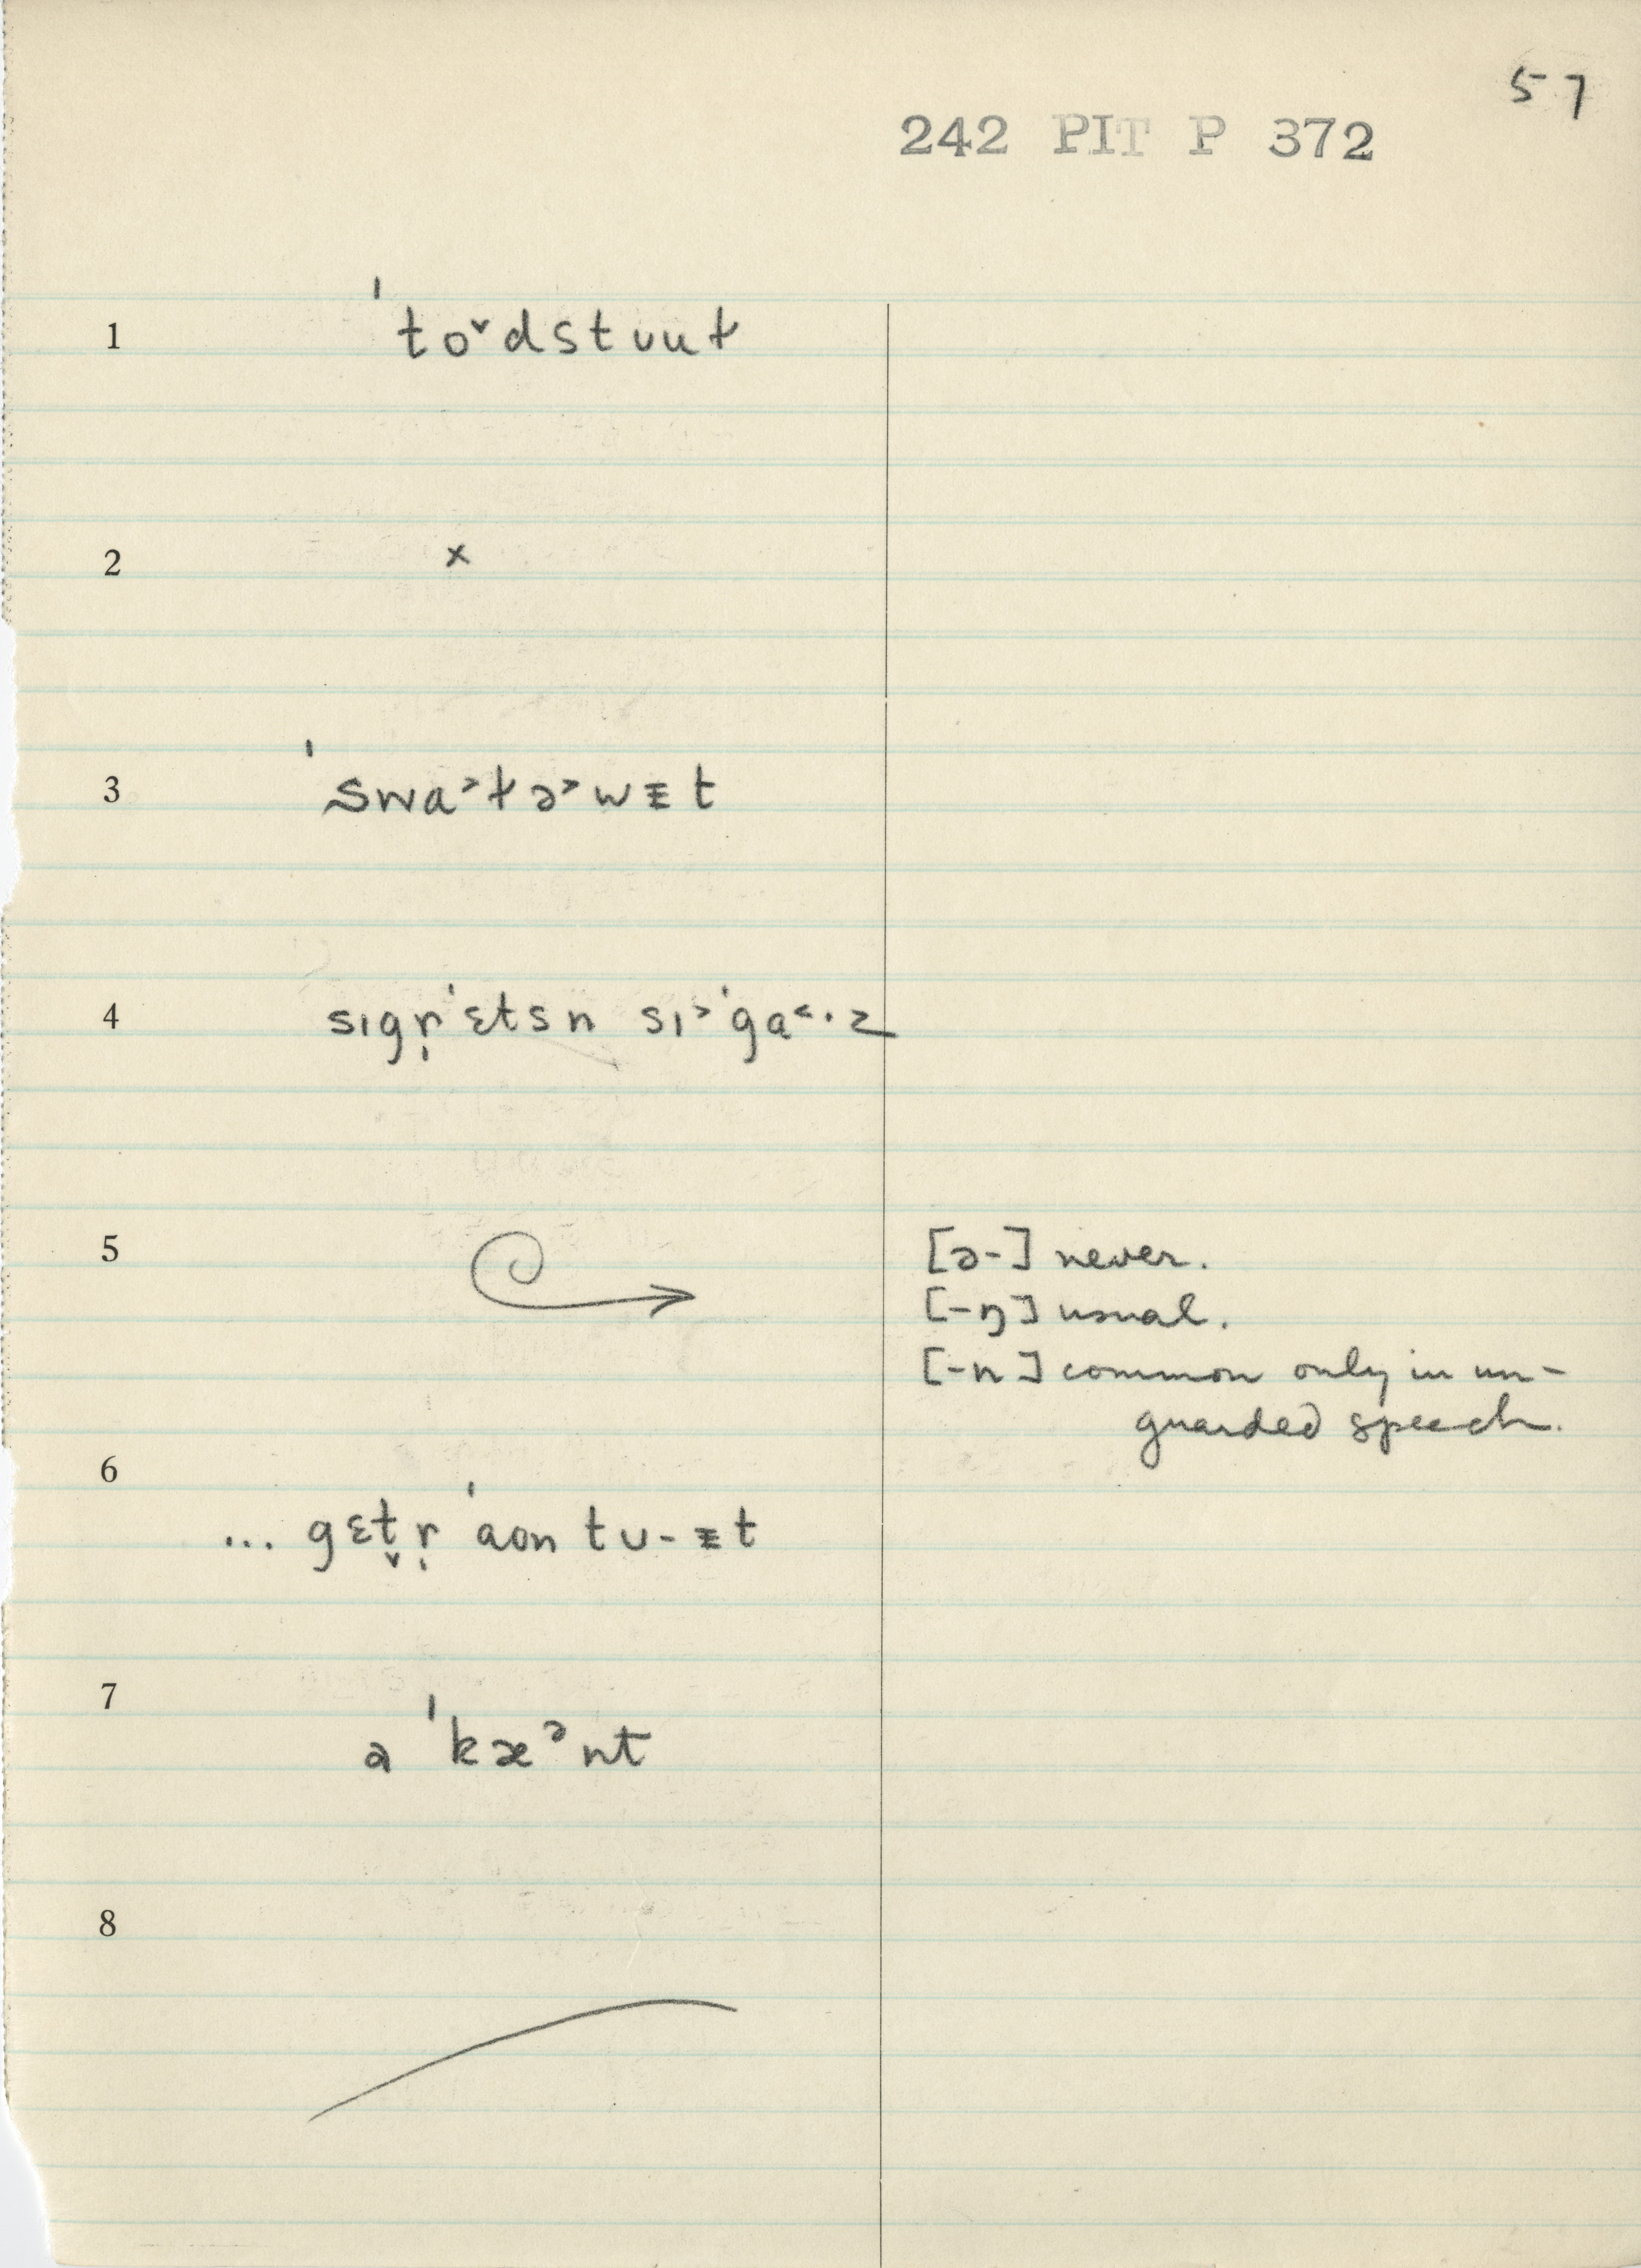 57
242 PIT P 372
1 ˈto˅dstuuɫ
2 x
3 ˈswa˃ɫə˃wᵻt
4 sɪgr̩ˈɛtsn sɪ˃ˈga˂·z
5
[ə-] never.
[-ŋ] usual.
[-n] common only in un-
guarded speech.
6
... gɛt̬r̩ ˈaon tu-ᵻt
7
a ˈkæᵊnt
8